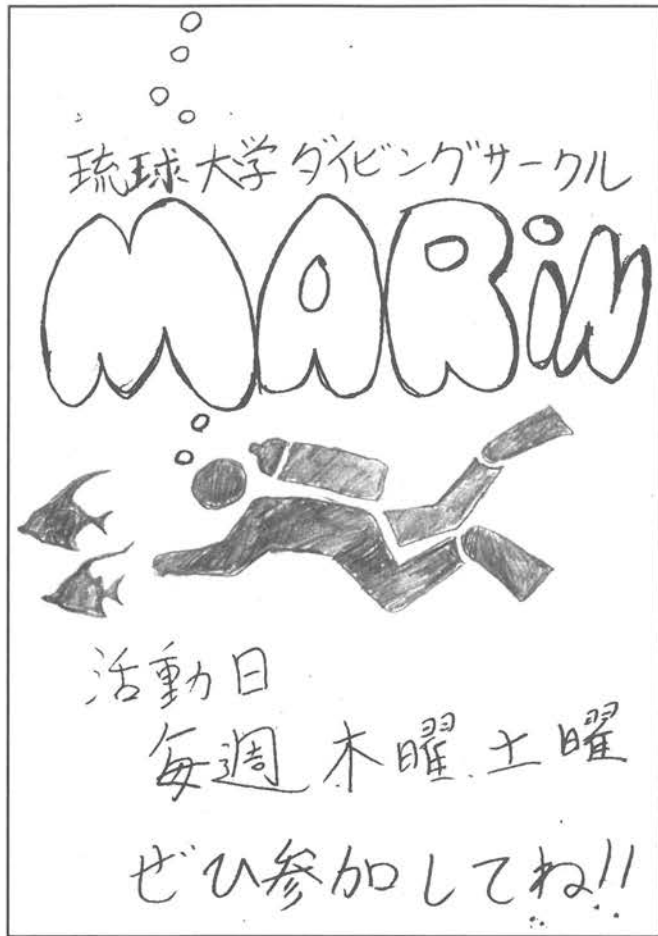 琉球大学ダイビングサークル
MARiN
活動日
毎週 木曜.土曜
ぜひ参加してね!!